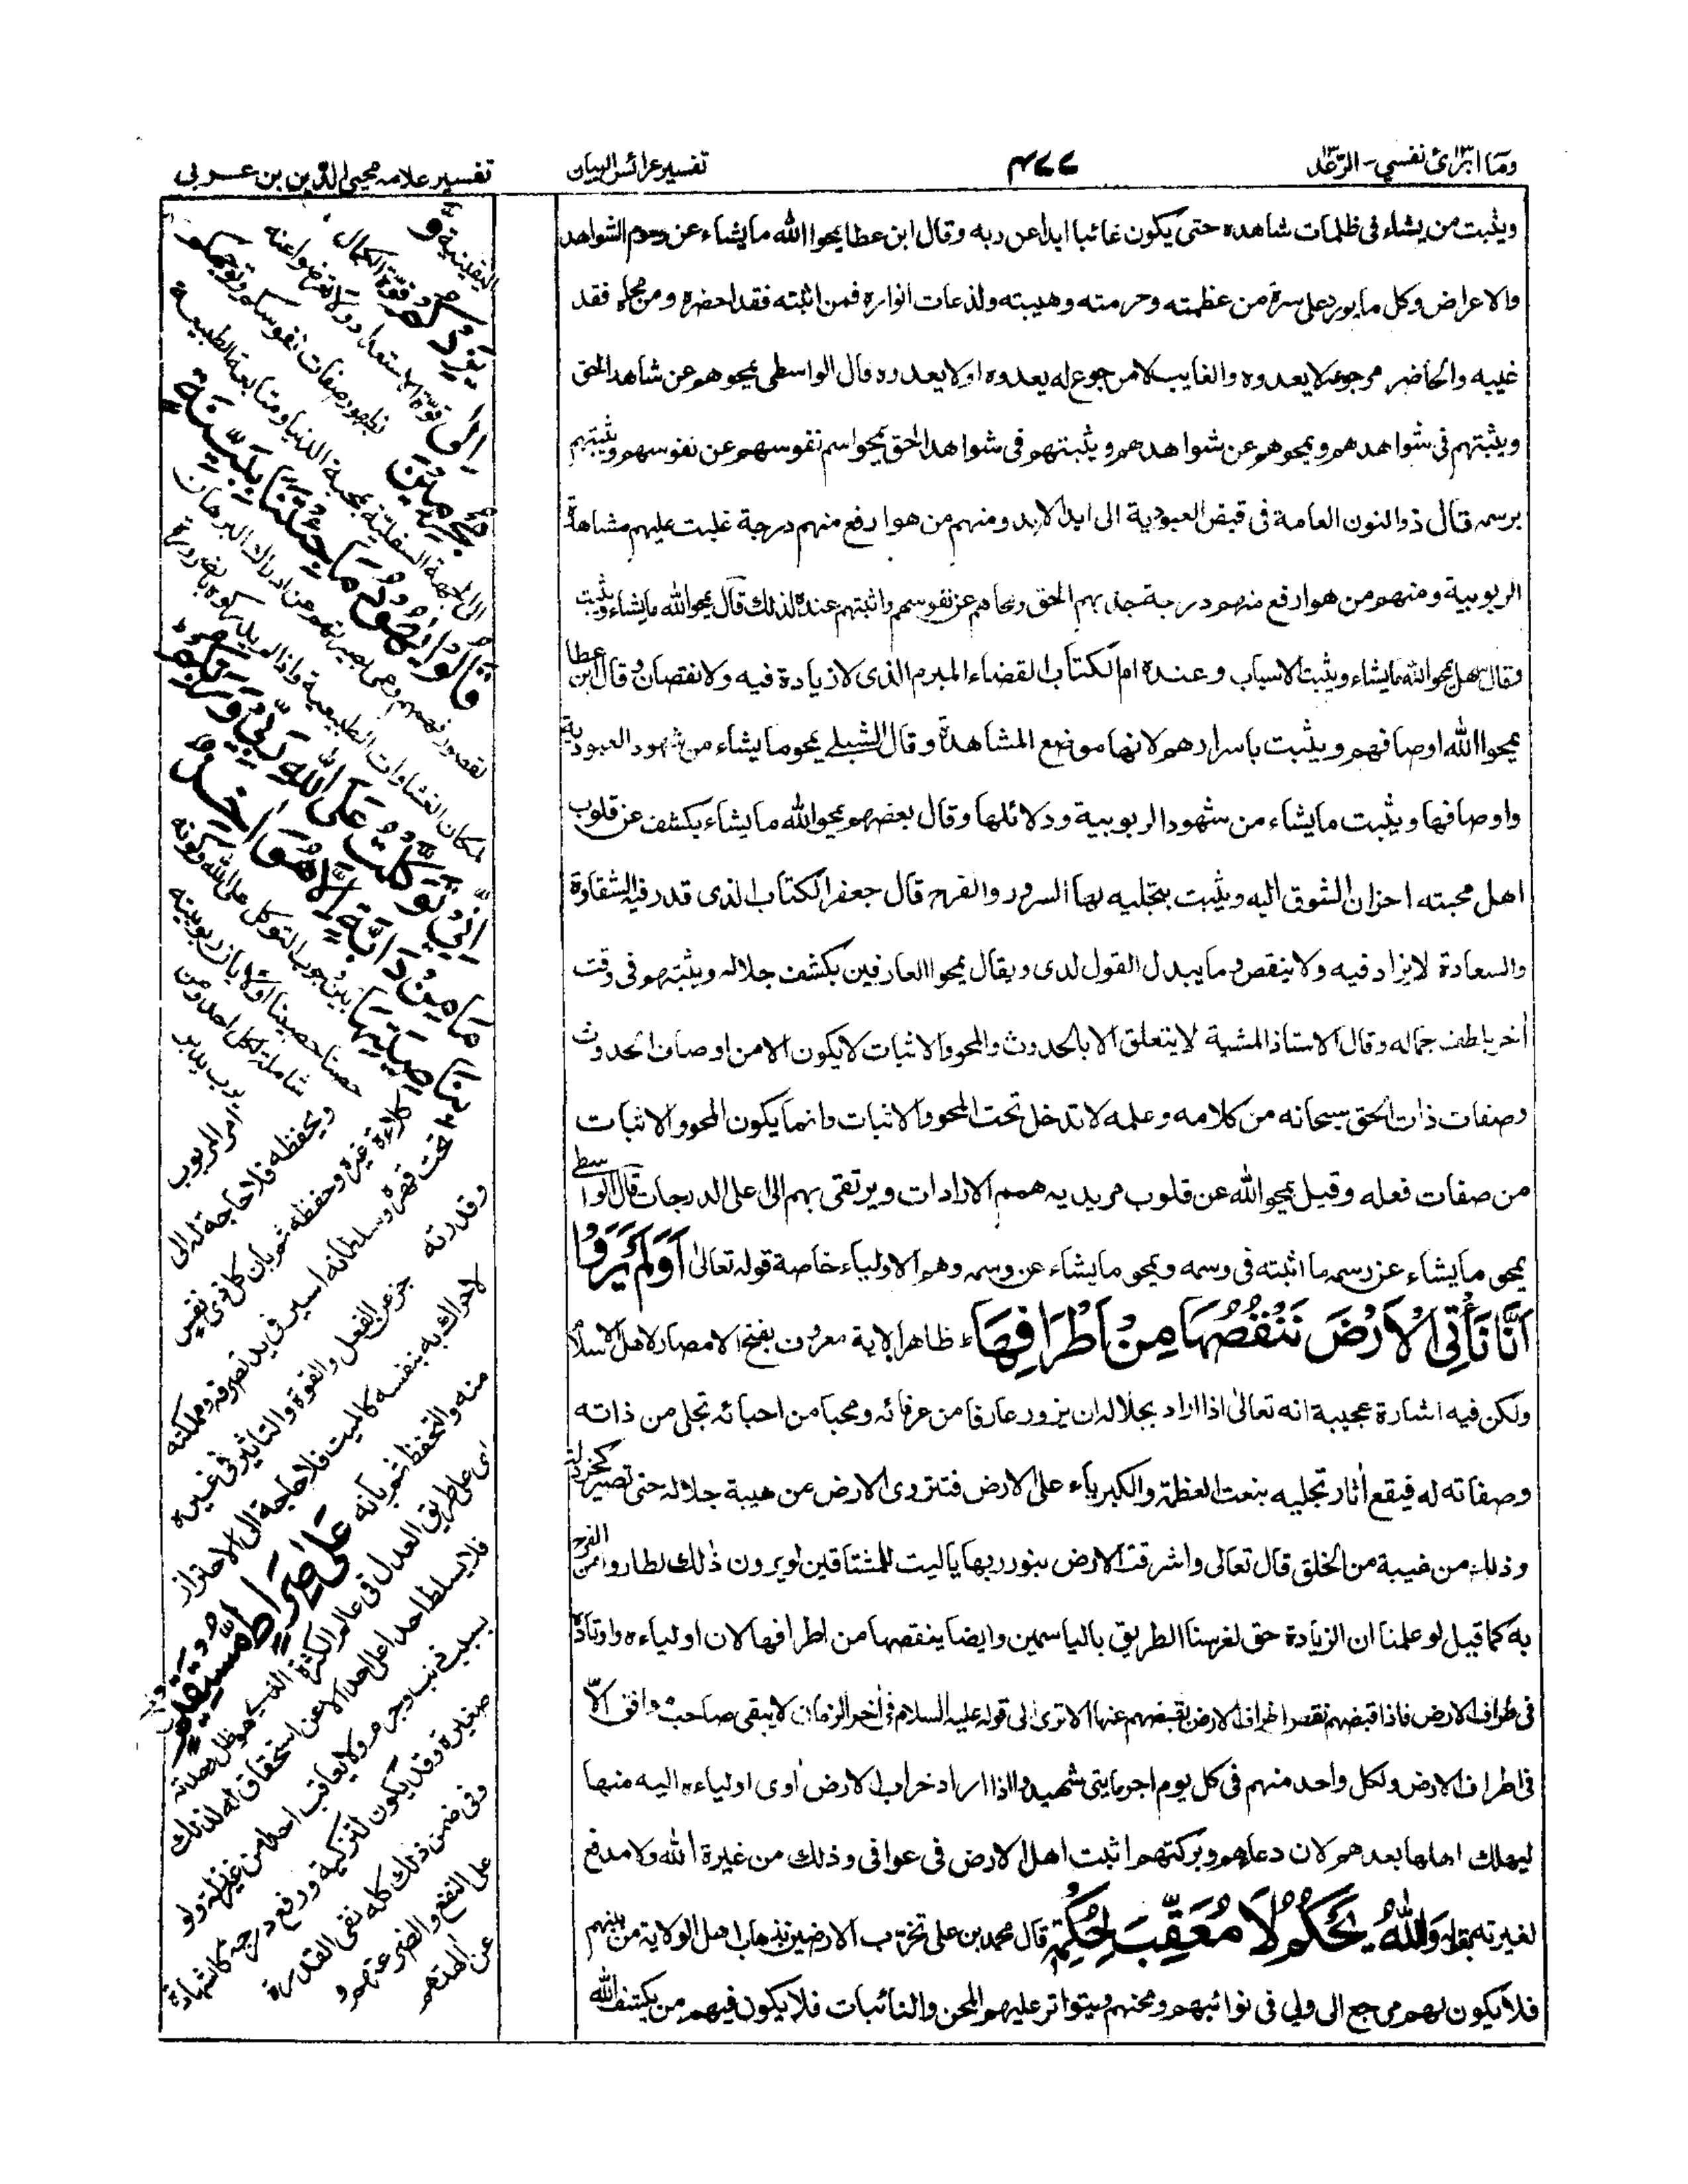 وما ابرئ نفسي - الرعد
٤٧٧
تفسير عرائس البيان
تفسير علامه محيى الدين بن عربى
ويثبت من يشاء فى ظلمات شاهده حتى يكون غائبا ابدا عن ربه وقال ابن عطا يمحوا الله ما يشاء عن رسوم الشواهد
والاعراض وكل ما يورد على سره من عظمته وحرمته وهيبته ولذعات انواره فمن اثبته فقد احضره ومن محاه فقد
غيبه والحاضر مرجوعه لا يعدوه والغايب لا مرجوع له يعدوه او لا يعدوه قال الواسطى يمحوهو عن شاهد الحق
ويثبتهم فى شواهدهم ويمحوهو عن شواهدهم ويثبتهم فى شواهد الحق يمحو اسم نفوسهم عن نفوسهم ويثبتهم
برسمه قال ذو النون العامة فى قبض العبودية الى ابد الابد ومنهم من هو ارفع منهم درجة غلبت عليهم مشاهدة
الربوبية ومنهم من هو ارفع منهم درجة جذبهم الحق ومحاهم عن نفوسهم واثبتهم عنده لذلك قال يمحو الله ما يشاء ويثبت
وقال سهل يمحو الله ما يشاء ويثبت الاسباب وعنده ام الكتاب القضاء المبرم الذى لا زيادة فيه ولا نقصان وقال ابن عطا
يمحوا الله اوصافهم ويثبت باسرارهم لانها موضع المشاهدة وقال الشبلى يمحو ما يشاء من شهود العبودية
واوصافها ويثبت ما يشاء من شهود الربوبية ودلائلها وقال بعضهم يمحو الله ما يشاء يكشف عن قلوب
اهل محبته احزان الشوق اليه ويثبت بتجليه بها السرور والفرح قال جعفر الكتاب الذى قدر فيه الشقاوة
والسعادة لا يزاد فيه ولا ينقص وما يبدل القول لدى ويقال يمحوا العارفين بكشف جلاله ويثبتهم فى وقت
اخر بلطف جماله وقال الاستاذ المشية لا يتعلق الا بالحدوث والمحو والاثبات لا يكون الا من اوصاف الحدوث
وصفات ذات الحق سبحانه من كلامه وعلمه لا تدخل تحت المحو والاثبات وانما يكون المحو والاثبات
من صفات فعله وقيل يمحو الله عن قلوب مريديه همم الارادات ويرتقى بهم الى اعلى الدرجات قال الواسطى
يمحو ما يشاء عن رسمه ما اثبته فى وسمه ويمحو ما يشاء عن وسمه وهو الاولياء خاصة قوله تعالى اَوَلَمْ يَرَوْا
اَنَّا نَأْتِى الْاَرْضَ نَنْقُصُهَا مِنْ اَطْرَافِهَا ء ظاهر الاية معروف بفتح الامصار لاهل الاسلام
ولكن فيه اشارة عجيبة انه تعالى اذا اراد بجلاله ان يزور عارفا من عرفائه ومحبا من احبائه تجلى من ذاته
وصفاته له فيقع اثار تجليه بنعت العظمة والكبرياء على الارض فتنزوى الارض من هيبة جلاله حتى تصير كخردلة
وذلك من غيبة من الخلق قال تعالى واشرقت الارض بنور ربها ياليت للمشتاقين لو يرون ذلك لطاروا من الفرح
به كما قيل لو علمنا ان الزيادة حق لفرشنا الطريق بالياسمين وايضا ينقصها من اطرافها لان اولياءه واوتاده
فى طراف الارض فاذا قبضهم نقصر اطراف الارض بقبضهم عنها الا ترى الى قوله عليه السلام فى اخر الزمان لا يبقى صاحب وافق الا
فى اطراف الارض ولكل واحد منهم فى كل يوم اجر مايتى شهيد واذا اراد خراب الارض اوى اولياءه اليه منها
ليهلك اهلها بعدهم لان دعاءهم وبركتهم اثبت اهل الارض فى عوافى وذلك من غيرة الله ولا مدفع
لغيرته بقوله وَاللهُ يَحْكُمُ لَا مُعَقِّبَ لِحُكْمِهٖ قال محمد بن على تخرب الارضين بذهاب اهل الولاية من بينهم
فلا يكون لهم مرجع الى ولى فى نوائبهم ومحنهم ويتواتر عليهم المحن والنائبات فلا يكون فيهم من يكشف الله
اليقينية وَّ
يَزِدْكُمْ قُوَّةً الكمال
اِلٰى قوة الاستعداد ولا تعرضوا عنه
بظهور صفات نفوسكم وتوجهكم
الى الجهة السفلية بمحبة الدنيا ومتابعة الطبيعة
مُجْرِمِيْنَ
قَالُوْا يٰهُوْدُ مَا جِئْتَنَا بِبَيِّنَةٍ
لقصور فهمهم وعمى بصيرتهم عن ادراك البرهان
لمكان الغشاوات الطبيعية واذا لم يدركوه بالضرورة
اِنِّىْ تَوَكَّلْتُ عَلَى اللهِ رَبِّىْ وَرَبِّكُمْ
مَا مِنْ دَابَّةٍ اِلَّا هُوَ اٰخِذٌ
بِنَاصِيَتِهَا بين وجوب التوكل على الله وكونه
حصنا حصينا اولا بان ربوبيته
شاملة لكل احد ومن
يرب يدبر
امر المربوب
ويحفظه فلا حاجة له الى
كلاءة غيره وحفظه ثم بان كل ذى نفس
تحت قهره وسلطانه اسير فى يد تصرفه ومملكته
وقدرته
عاجز عن الفعل والقوة والتاثير فى غيره
لا حراك به بنفسه كالميت فلا حاجة الى الاحتراز
منه والتحفظ ثم بانه عَلٰى صِرَاطٍ مُّسْتَقِيْمٍ
اى على طريق العدل فى عالم الكثرة الذى هو ظل وحدته
فلا يسلط احدا على احد الا عن استحقاق له لذلك
بسبب ذنب وجرم ولا يعاقب احدا من غير زلة ولو
صغيرة وقد يكون لتزكية ورفع درجة كالشهادة
وفى ضمن ذلك كله نفى القدرة
على النفع والضر عنهم و
عن الهتهم